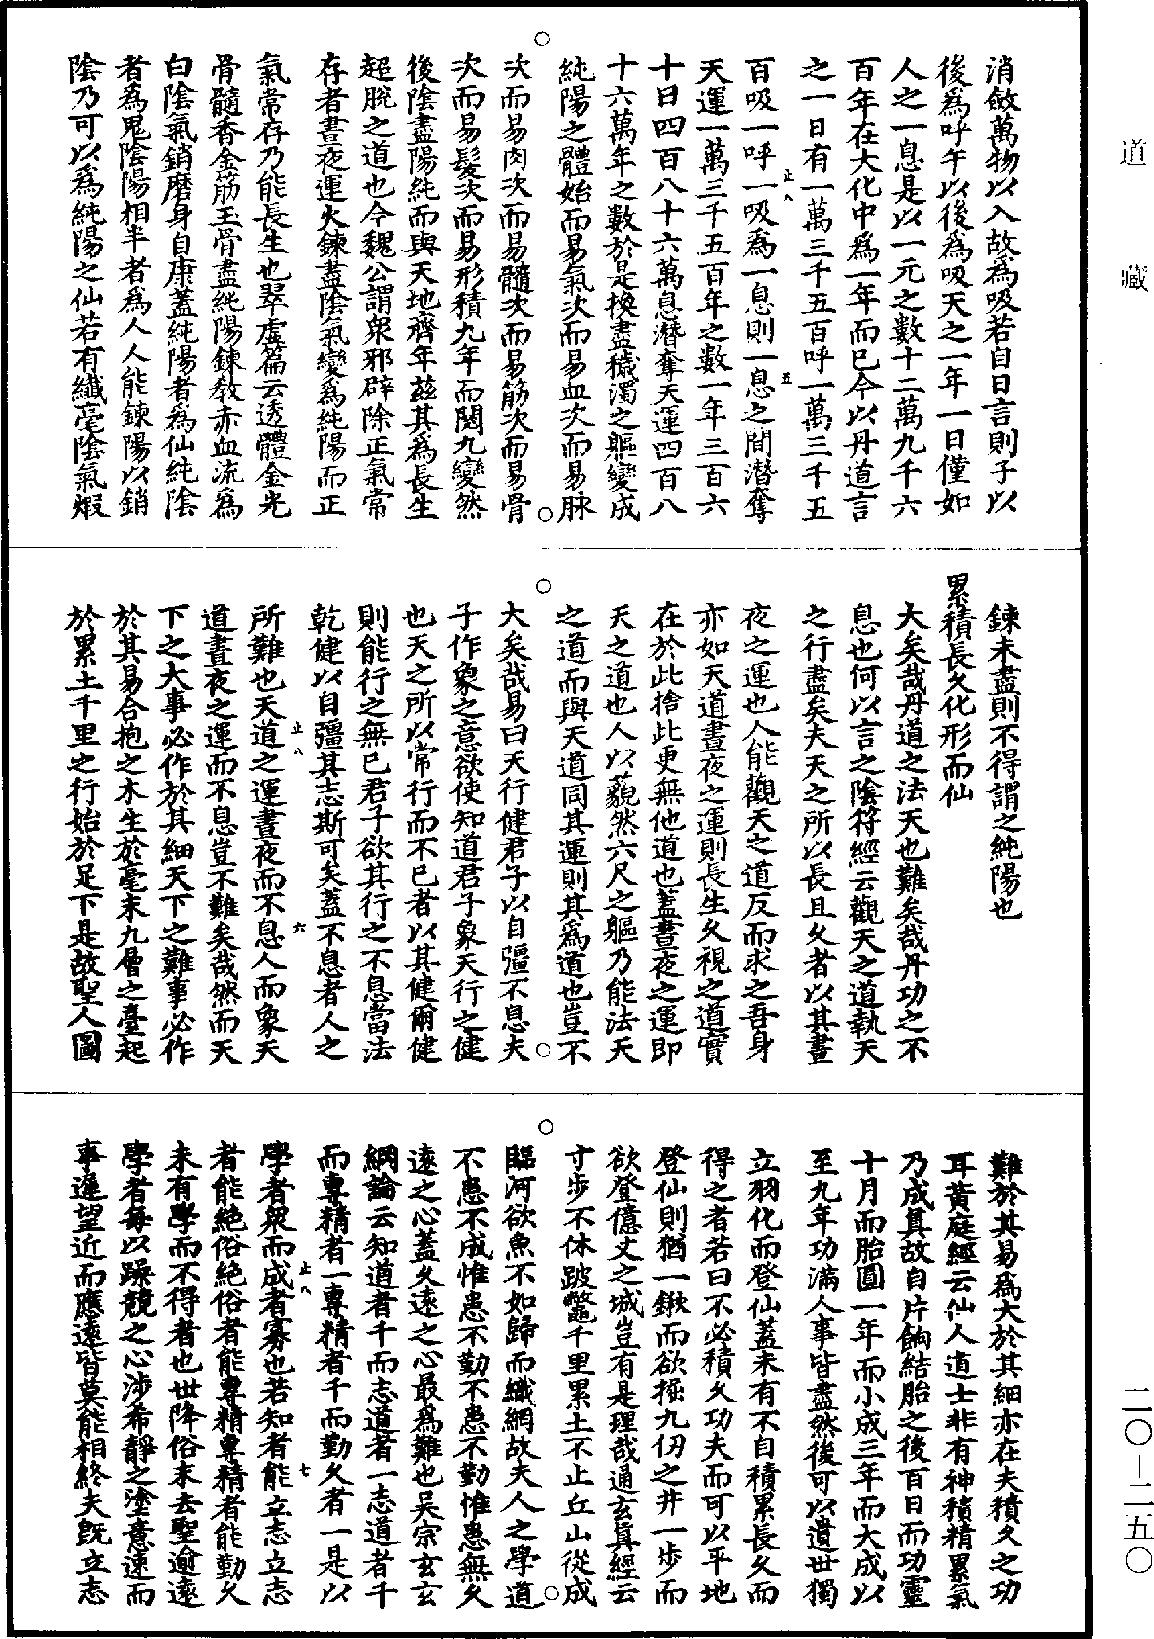 道藏
消斂萬物以入故為吸若自日言則子以
後為呼午以後為吸天之一年一日僅如
人之一息是以一元之數十二萬九千六
百年在大化中為一年而已今以丹道言
之一日有一萬三千五百呼一萬三千五
百吸一呼一吸為一息則一息之間潛奪
天運一萬三千五百年之數一年三百六
十日四百八十六萬息潛奪天運四百八
十六萬年之數於是換盡穢濁之軀變成
純陽之體始而易氣次而易血次而易脉
次而易肉次而易髓次而易筋次而易骨
次而易髮次而易形積九年而閱九變然
後陰盡陽純而與天地齊年茲其為長生
超脫之道也今魏公謂衆邪辟除正氣常
存者晝夜運火鍊盡陰氣變為純陽而正
氣常存乃能長生也翠虛篇云透體金光
骨髓香金筋玉骨盡純陽鍊教赤血流為
白陰氣銷磨身自康蓋純陽者為仙純陰
者為鬼陰陽相半者為人人能鍊陽以銷
陰乃可以為純陽之仙若有纖毫陰氣煅
止八
五
鍊未盡則不得謂之純陽也
累積長久化形而仙
大矣哉丹道之法天也難矣哉丹功之不
息也何以言之陰符經云觀天之道執天
之行盡矣夫天之所以長且久者以其晝
夜之運也人能觀天之道反而求之吾身
亦如天道晝夜之運則長生久視之道實
在於此捨此更無他道也蓋晝夜之運即
天之道也人以藐然六尺之軀乃能法天
之道而與天道同其運則其為道也豈不
大矣哉易曰天行健君子以自彊不息夫
子作象之意欲使知道君子象天行之健
也天之所以常行而不已者以其健爾健
則能行之無已君子欲其行之不息當法
乾健以自彊其志斯可矣蓋不息者人之
所難也天道之運晝夜而不息人而象天
道晝夜之運而不息豈不難矣哉然而天
下之大事必作於其細天下之難事必作
於其易合抱之木生於毫末九層之臺起
於累土千里之行始於足下是故聖人圖
止八
六
難於其易為大於其細亦在夫積久之功
耳黃庭經云仙人道士非有神積精累氣
乃成真故自片餉結胎之後百日而功靈
十月而胎圓一年而小成三年而大成以
至九年功滿人事皆盡然後可以遺世獨
立羽化而登仙蓋未有不自積累長久而
得之者若曰不必積久功夫而可以平地
登仙則猶一鍬而欲掘九仞之井一步而
欲登億丈之城豈有是理哉通玄真經云
寸步不休跛鱉千里累土不止丘山從成
臨河欲魚不如歸而織網故夫人之學道
不患不成惟患不勤不患不勤惟患無久
遠之心蓋久遠之心最為難也吴宗玄玄
綱論云知道者千而志道者一志道者千
而專精者一專精者千而勤久者一是以
學者衆而成者寡也若知者能立志立志
者能絕俗絕俗者能專精專精者能勤久
未有學而不得者也世降俗末去聖逾遠
學者每以躁競之心涉希靜之塗意速而
事遲望近而應遠皆莫能相終夫既立志
止八
七
二〇—二五〇